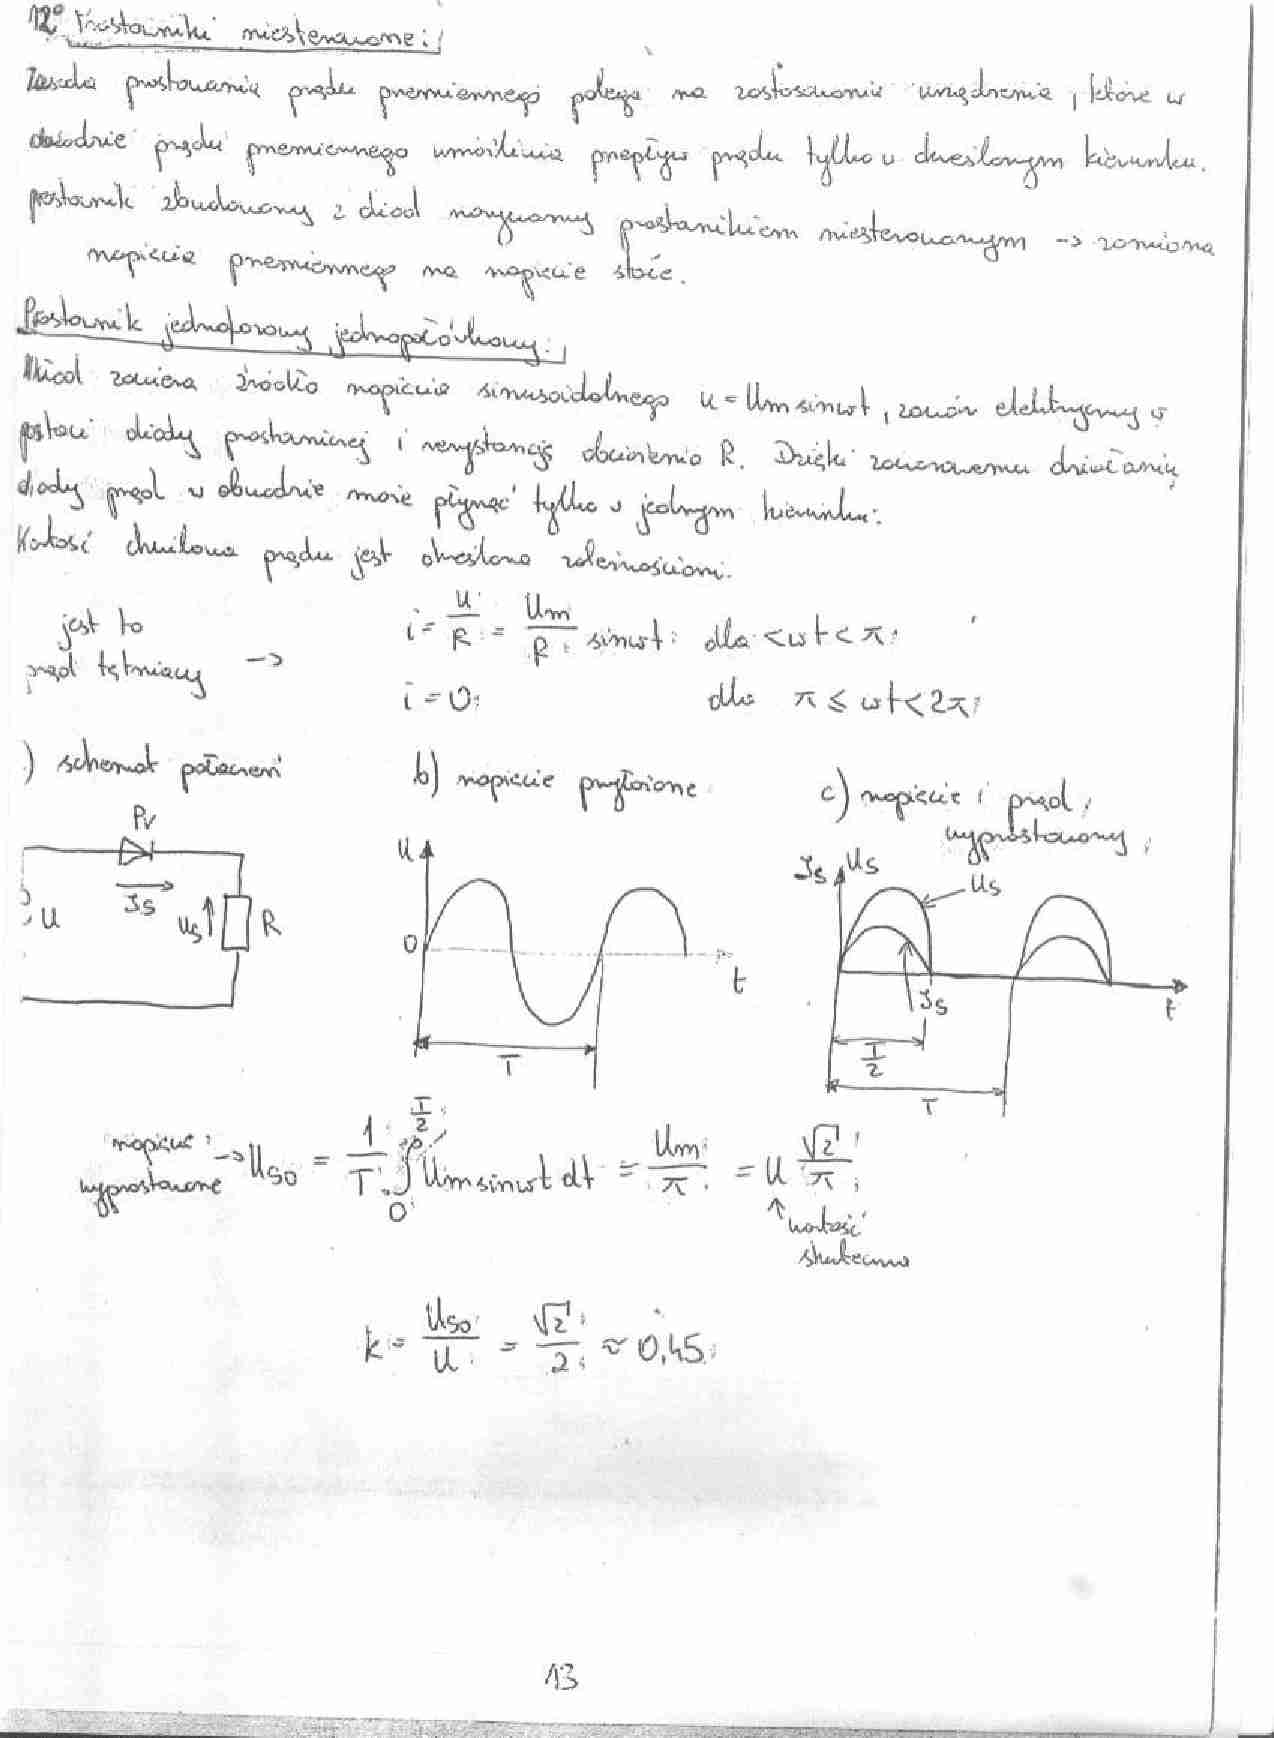 12° Prostowniki niesterowane:
Zasada prostowania prądu przemiennego polega na zastosowaniu urządzenia, które w
obwodzie prądu przemiennego umożliwia przepływ prądu tylko w określonym kierunku.
prostownik zbudowany z diod nazywamy prostownikiem niesterowanym -> zamiana
napięcia przemiennego na napięcie stałe.
Prostownik jednofazowy jednopołówkowy:
Układ zawiera źródło napięcia sinusoidalnego u = Um sinωt, zawór elektryczny w
postaci diody prostowniczej i rezystancję obciążenia R. Dzięki zaworowemu działaniu
diody prąd w obwodzie może płynąć tylko w jednym kierunku:
Wartość chwilowa prądu jest określona zależnościami.
jest to
prąd tętniący ->
i = u/R = Um/R sinωt dla <ωt<π
i = 0 dla π ≤ ωt < 2π
) schemat połączeń
b) napięcie przyłożone
c) napięcie i prąd
wyprostowany
Pr
Is
U
Us
R
u
0
t
T
Is
Us
Us
Is
t
T/2
T
napięcie
wyprostowane
-> Uso = 1/T ∫₀^(T/2) Um sinωt dt = Um/π = U √2/π
↑ wartość
skuteczna
k = Uso/U = √2/2 ≈ 0,45
13